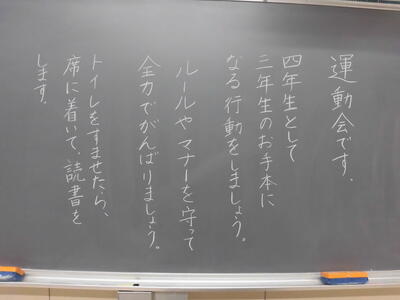 運動会です、
四年生として
三年生のお手本に
なる行動をしましょう。
ルールやマナーを守って
全力でがんばりましょう。
トイレをすませたら、
席に着いて、読書を
します。